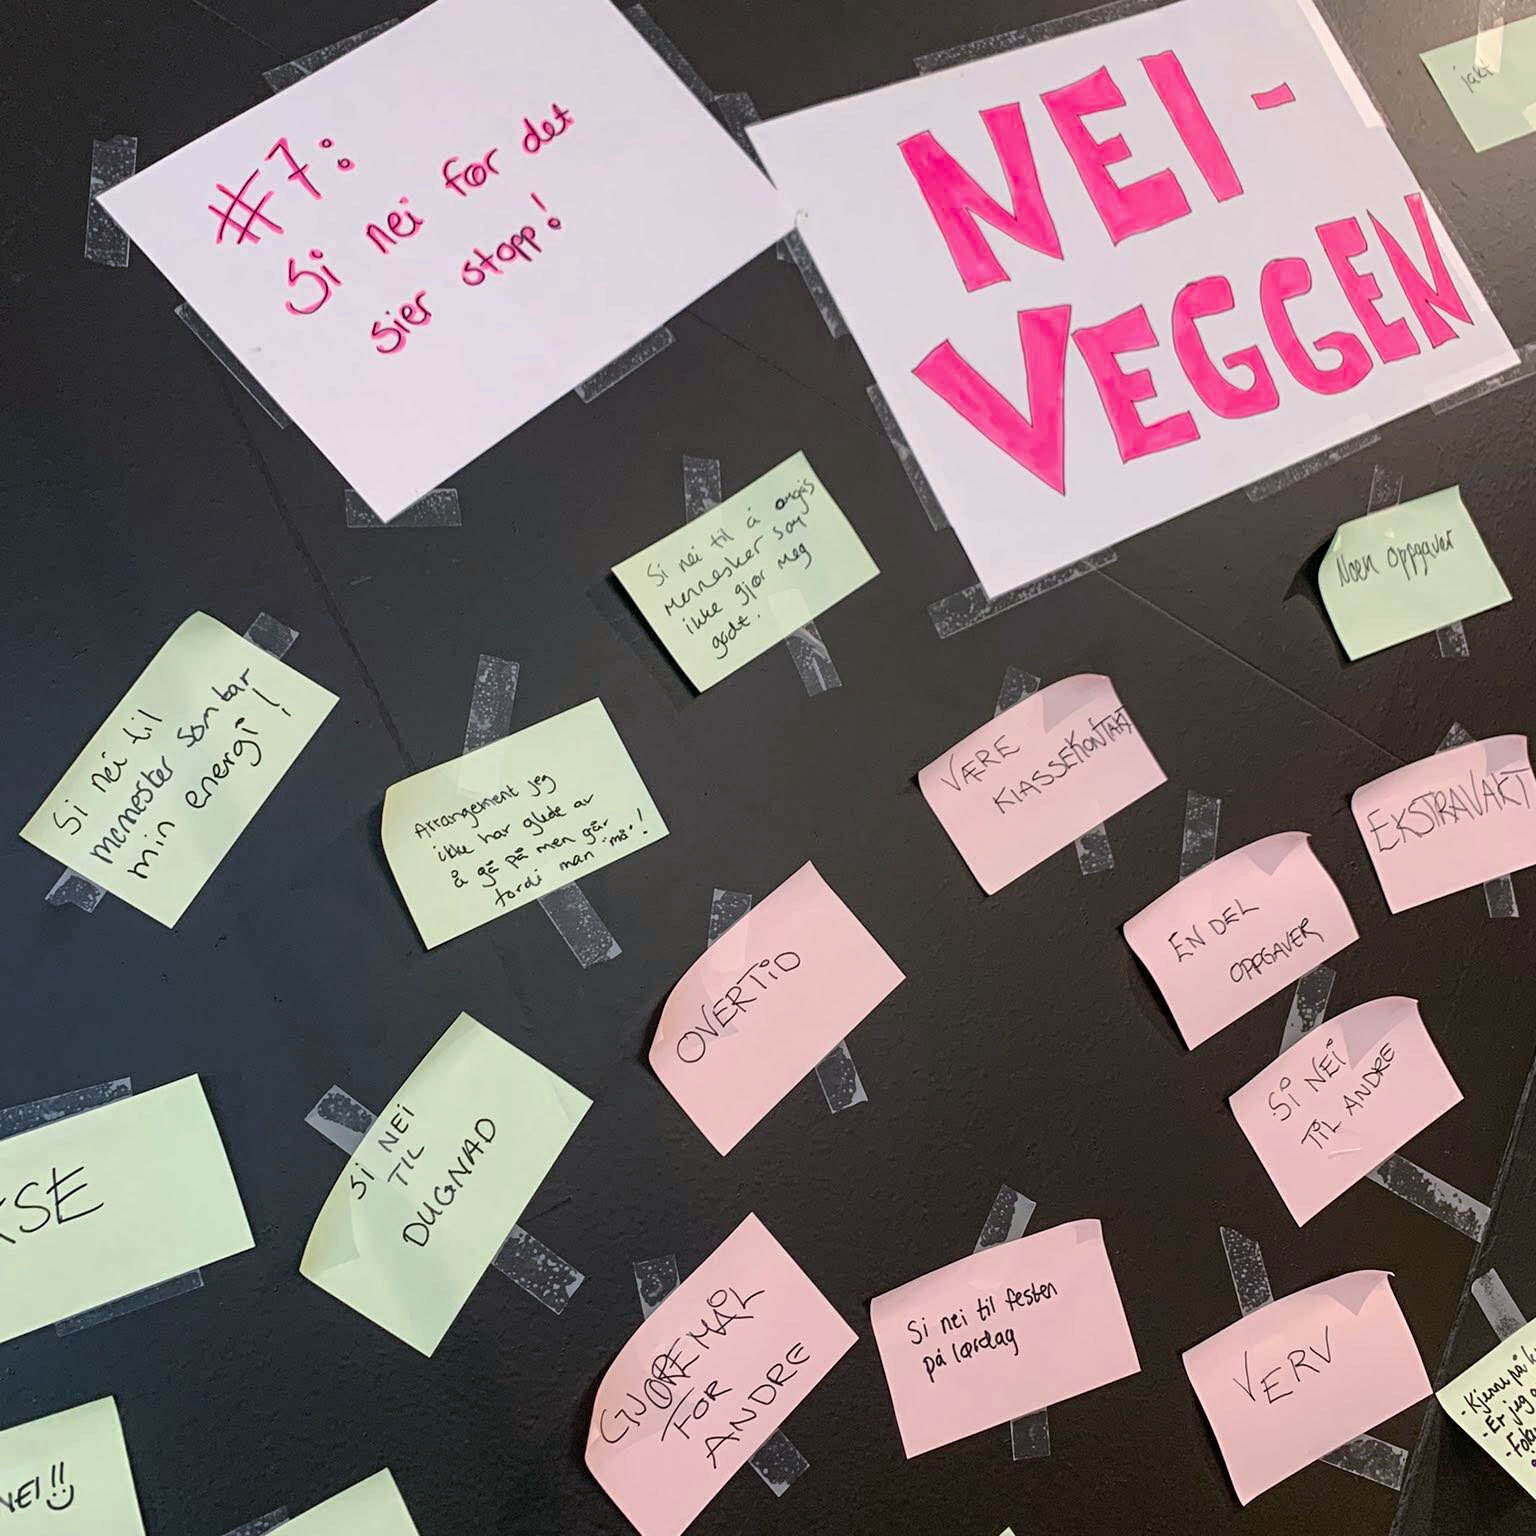 #7:
Si nei før det
sier stopp!
NEI-
VEGGEN
jakt
Si nei til å omgås
mennesker som
ikke gjør meg
godt.
Noen oppgaver
Si nei til
mennesker som tar
min energi!
Arrangement jeg
ikke har glede av
å gå på men går
fordi man "må"!
VÆRE
KLASSEKONTAKT
EKSTRAVAKT
EN DEL
OPPGAVER
OVERTID
SI NEI
TIL ANDRE
SI NEI
TIL
DUGNAD
GJØREMÅL
FOR
ANDRE
Si nei til festen
på lørdag
VERV
- Kjenn på
- Er jeg
NEI!!